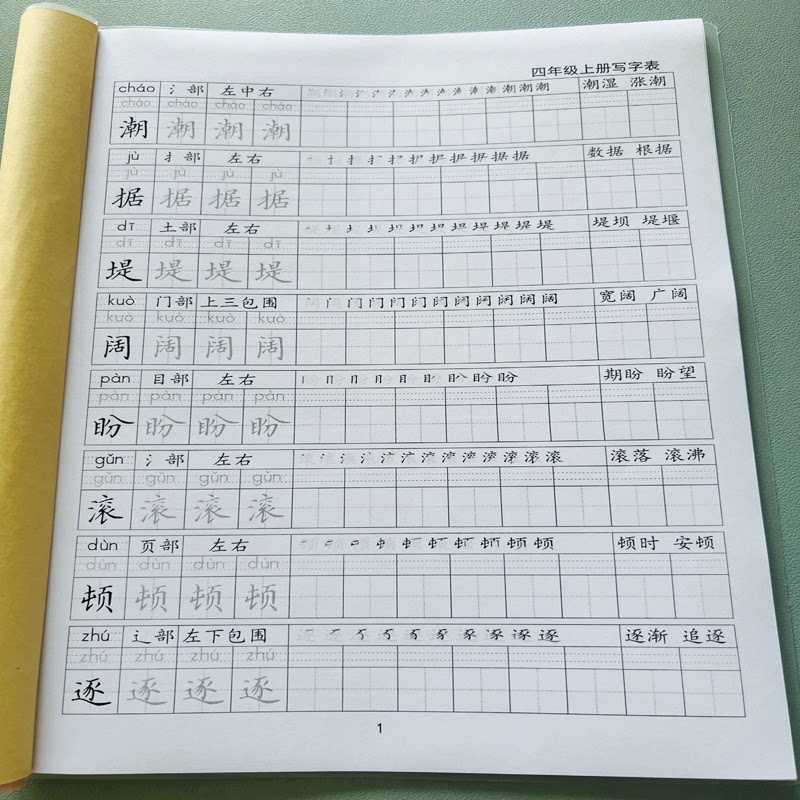 四年级上册写字表
cháo 氵部 左中右 潮湿 涨潮
cháo cháo cháo cháo
潮 潮 潮 潮
jù 扌部 左右 数据 根据
jù jù jù jù
据 据 据 据
dī 土部 左右 堤坝 堤堰
dī dī dī dī
堤 堤 堤 堤
kuò 门部 上三包围 宽阔 广阔
kuò kuò kuò kuò
阔 阔 阔 阔
pàn 目部 左右 期盼 盼望
pàn pàn pàn pàn
盼 盼 盼 盼
gǔn 氵部 左右 滚落 滚沸
gǔn gǔn gǔn gǔn
滚 滚 滚 滚
dùn 页部 左右 顿时 安顿
dùn dùn dùn dùn
顿 顿 顿 顿
zhú 辶部 左下包围 逐渐 追逐
zhú zhú zhú zhú
逐 逐 逐 逐
1